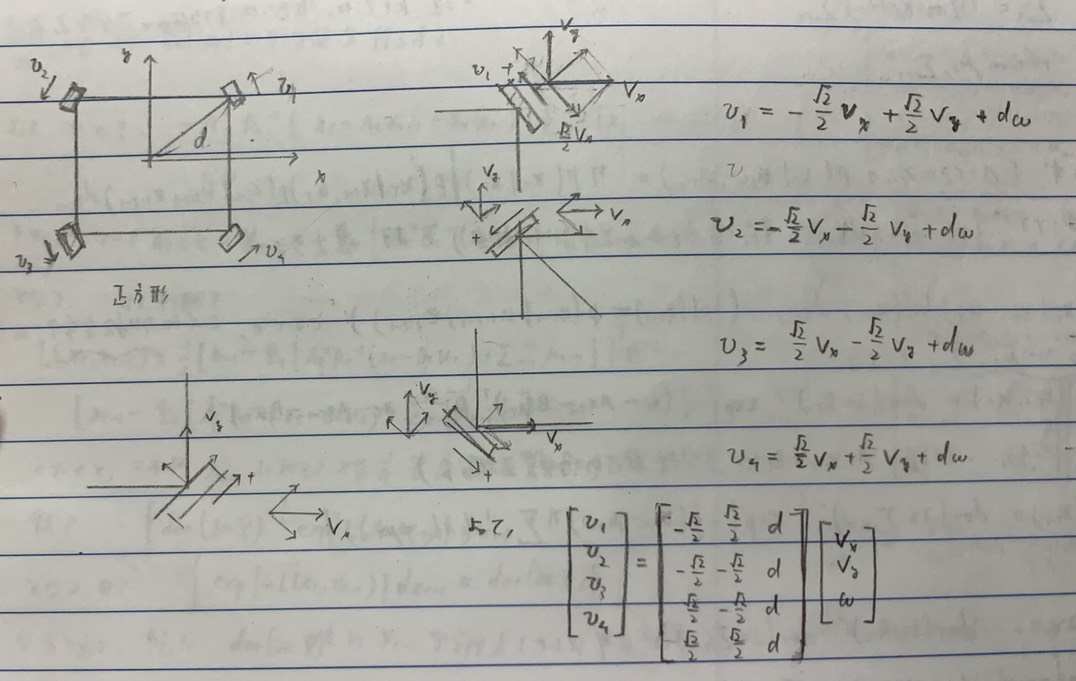 y
v₂
v₁
d
x
v₃
v₄
正方形
V_y
v₁ +
V_x
√2/2 V_x
v₁ = -√2/2 V_x + √2/2 V_y + dω
v
V_y
V_x
+
v₂ = -√2/2 V_x - √2/2 V_y + dω
v₃ = √2/2 V_x - √2/2 V_y + dω
V_y
V_x
+
V_y
+
V_x
v₄ = √2/2 V_x + √2/2 V_y + dω
[v₁ v₂ v₃ v₄] = [-√2/2 √2/2 d; -√2/2 -√2/2 d; √2/2 -√2/2 d; √2/2 √2/2 d] [V_x V_y ω]